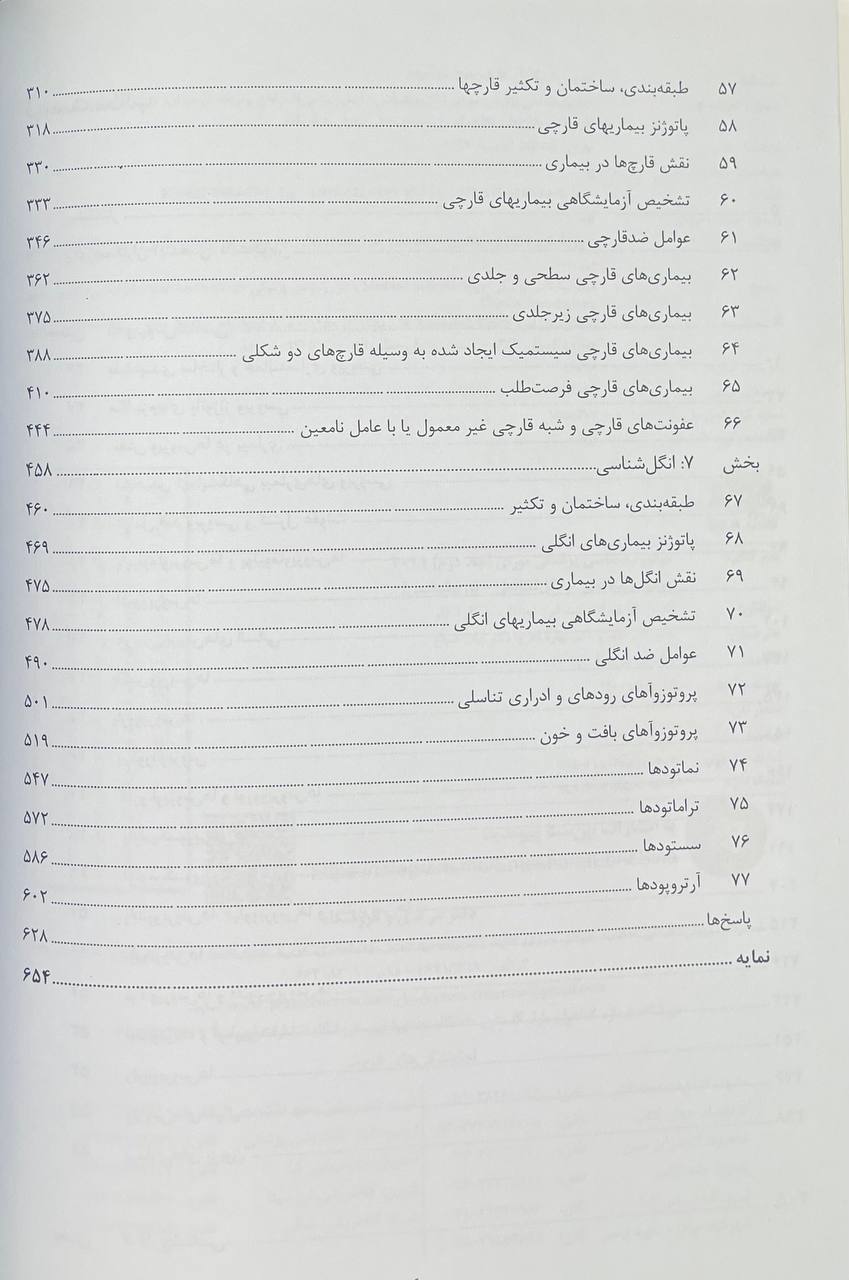 ۵۷ طبقه‌بندی، ساختمان و تکثیر قارچها ۳۱۰
۵۸ پاتوژنز بیماریهای قارچی ۳۱۸
۵۹ نقش قارچ‌ها در بیماری ۳۳۰
۶۰ تشخیص آزمایشگاهی بیماریهای قارچی ۳۳۳
۶۱ عوامل ضدقارچی ۳۴۶
۶۲ بیماری‌های قارچی سطحی و جلدی ۳۶۲
۶۳ بیماری‌های قارچی زیرجلدی ۳۷۵
۶۴ بیماری‌های قارچی سیستمیک ایجاد شده به وسیله قارچ‌های دو شکلی ۳۸۸
۶۵ بیماری‌های قارچی فرصت‌طلب ۴۱۰
۶۶ عفونت‌های قارچی و شبه قارچی غیر معمول یا با عامل نامعین ۴۴۴
بخش ۷: انگل‌شناسی ۴۵۸
۶۷ طبقه‌بندی، ساختمان و تکثیر ۴۶۰
۶۸ پاتوژنز بیماری‌های انگلی ۴۶۹
۶۹ نقش انگل‌ها در بیماری ۴۷۵
۷۰ تشخیص آزمایشگاهی بیماریهای انگلی ۴۷۸
۷۱ عوامل ضد انگلی ۴۹۰
۷۲ پروتوزوآهای روده‌ای و ادراری تناسلی ۵۰۱
۷۳ پروتوزوآهای بافت و خون ۵۱۹
۷۴ نماتودها ۵۴۷
۷۵ تراماتودها ۵۷۲
۷۶ سستودها ۵۸۶
۷۷ آرتروپودها ۶۰۲
پاسخ‌ها ۶۲۸
نمایه ۶۵۴